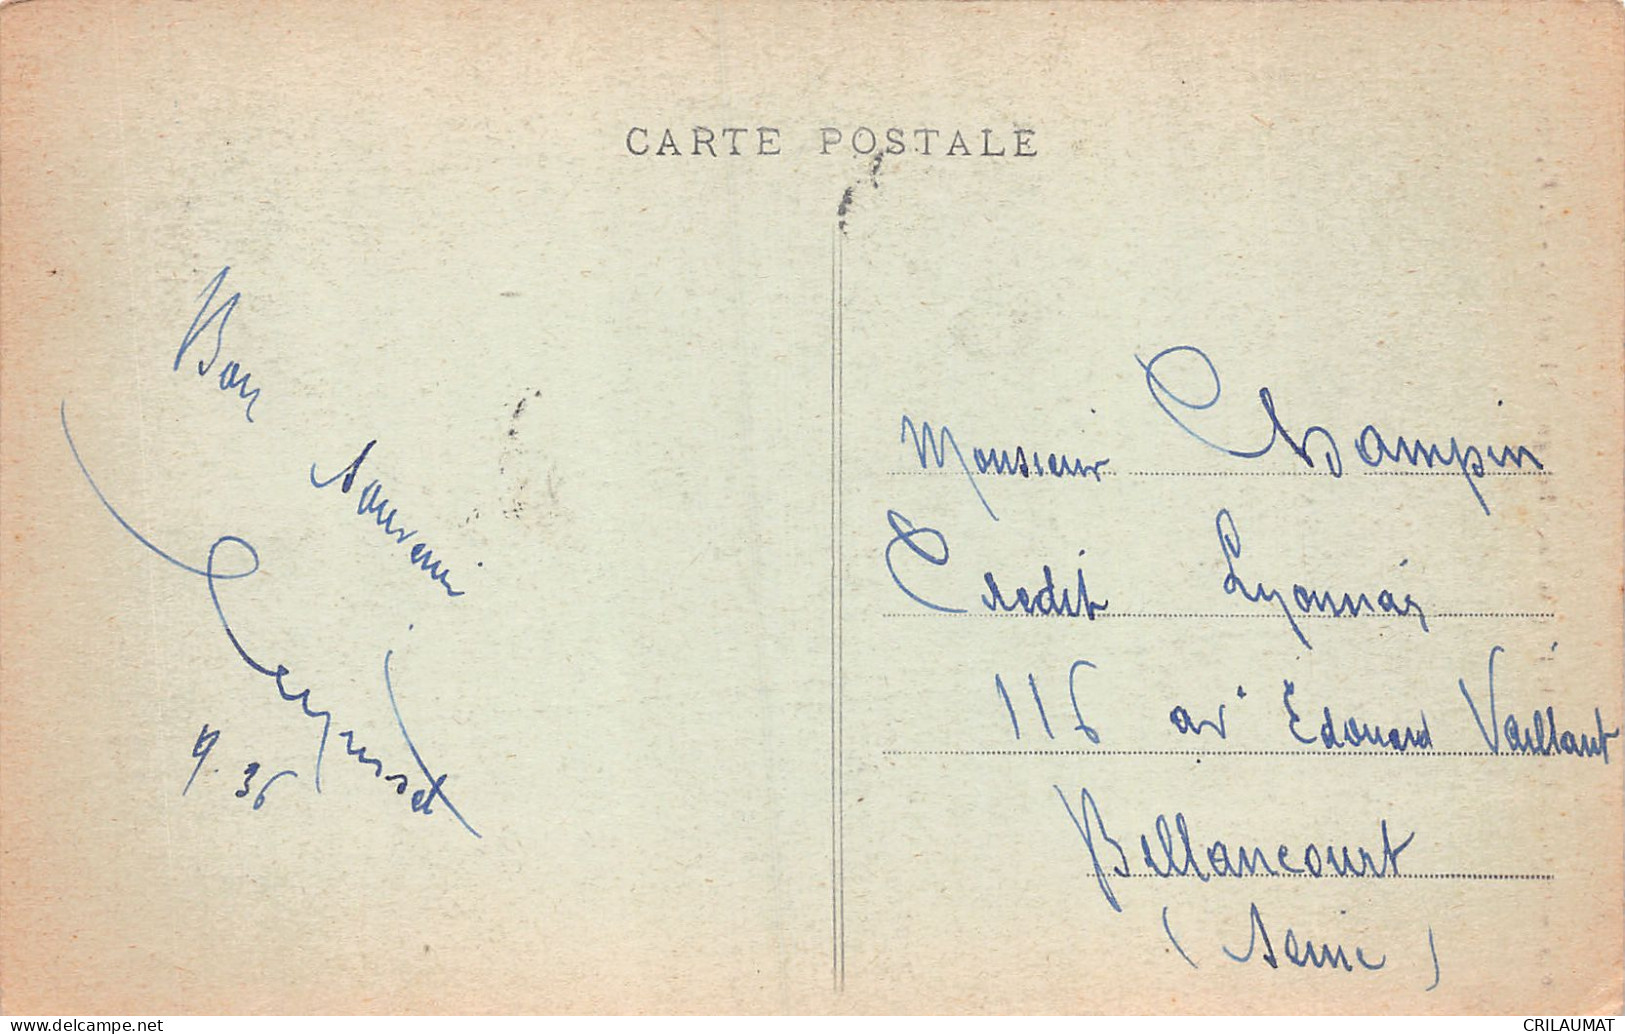 CARTE POSTALE
Bon
Souvenir
9.36
Monsieur Champin
Credit Lyonnais
116 av Edouard Vaillant
Billancourt
(Seine)
CRILAUMAT